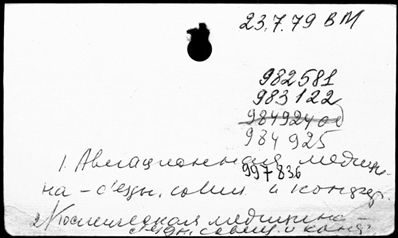 23.7.79 ВМ
982581
983122
984924
984925
1. Авиационная медици-
997836
на - съезды, совещ. и конфер.
2. Космическая медицина -
съезды, совещ. и конф.